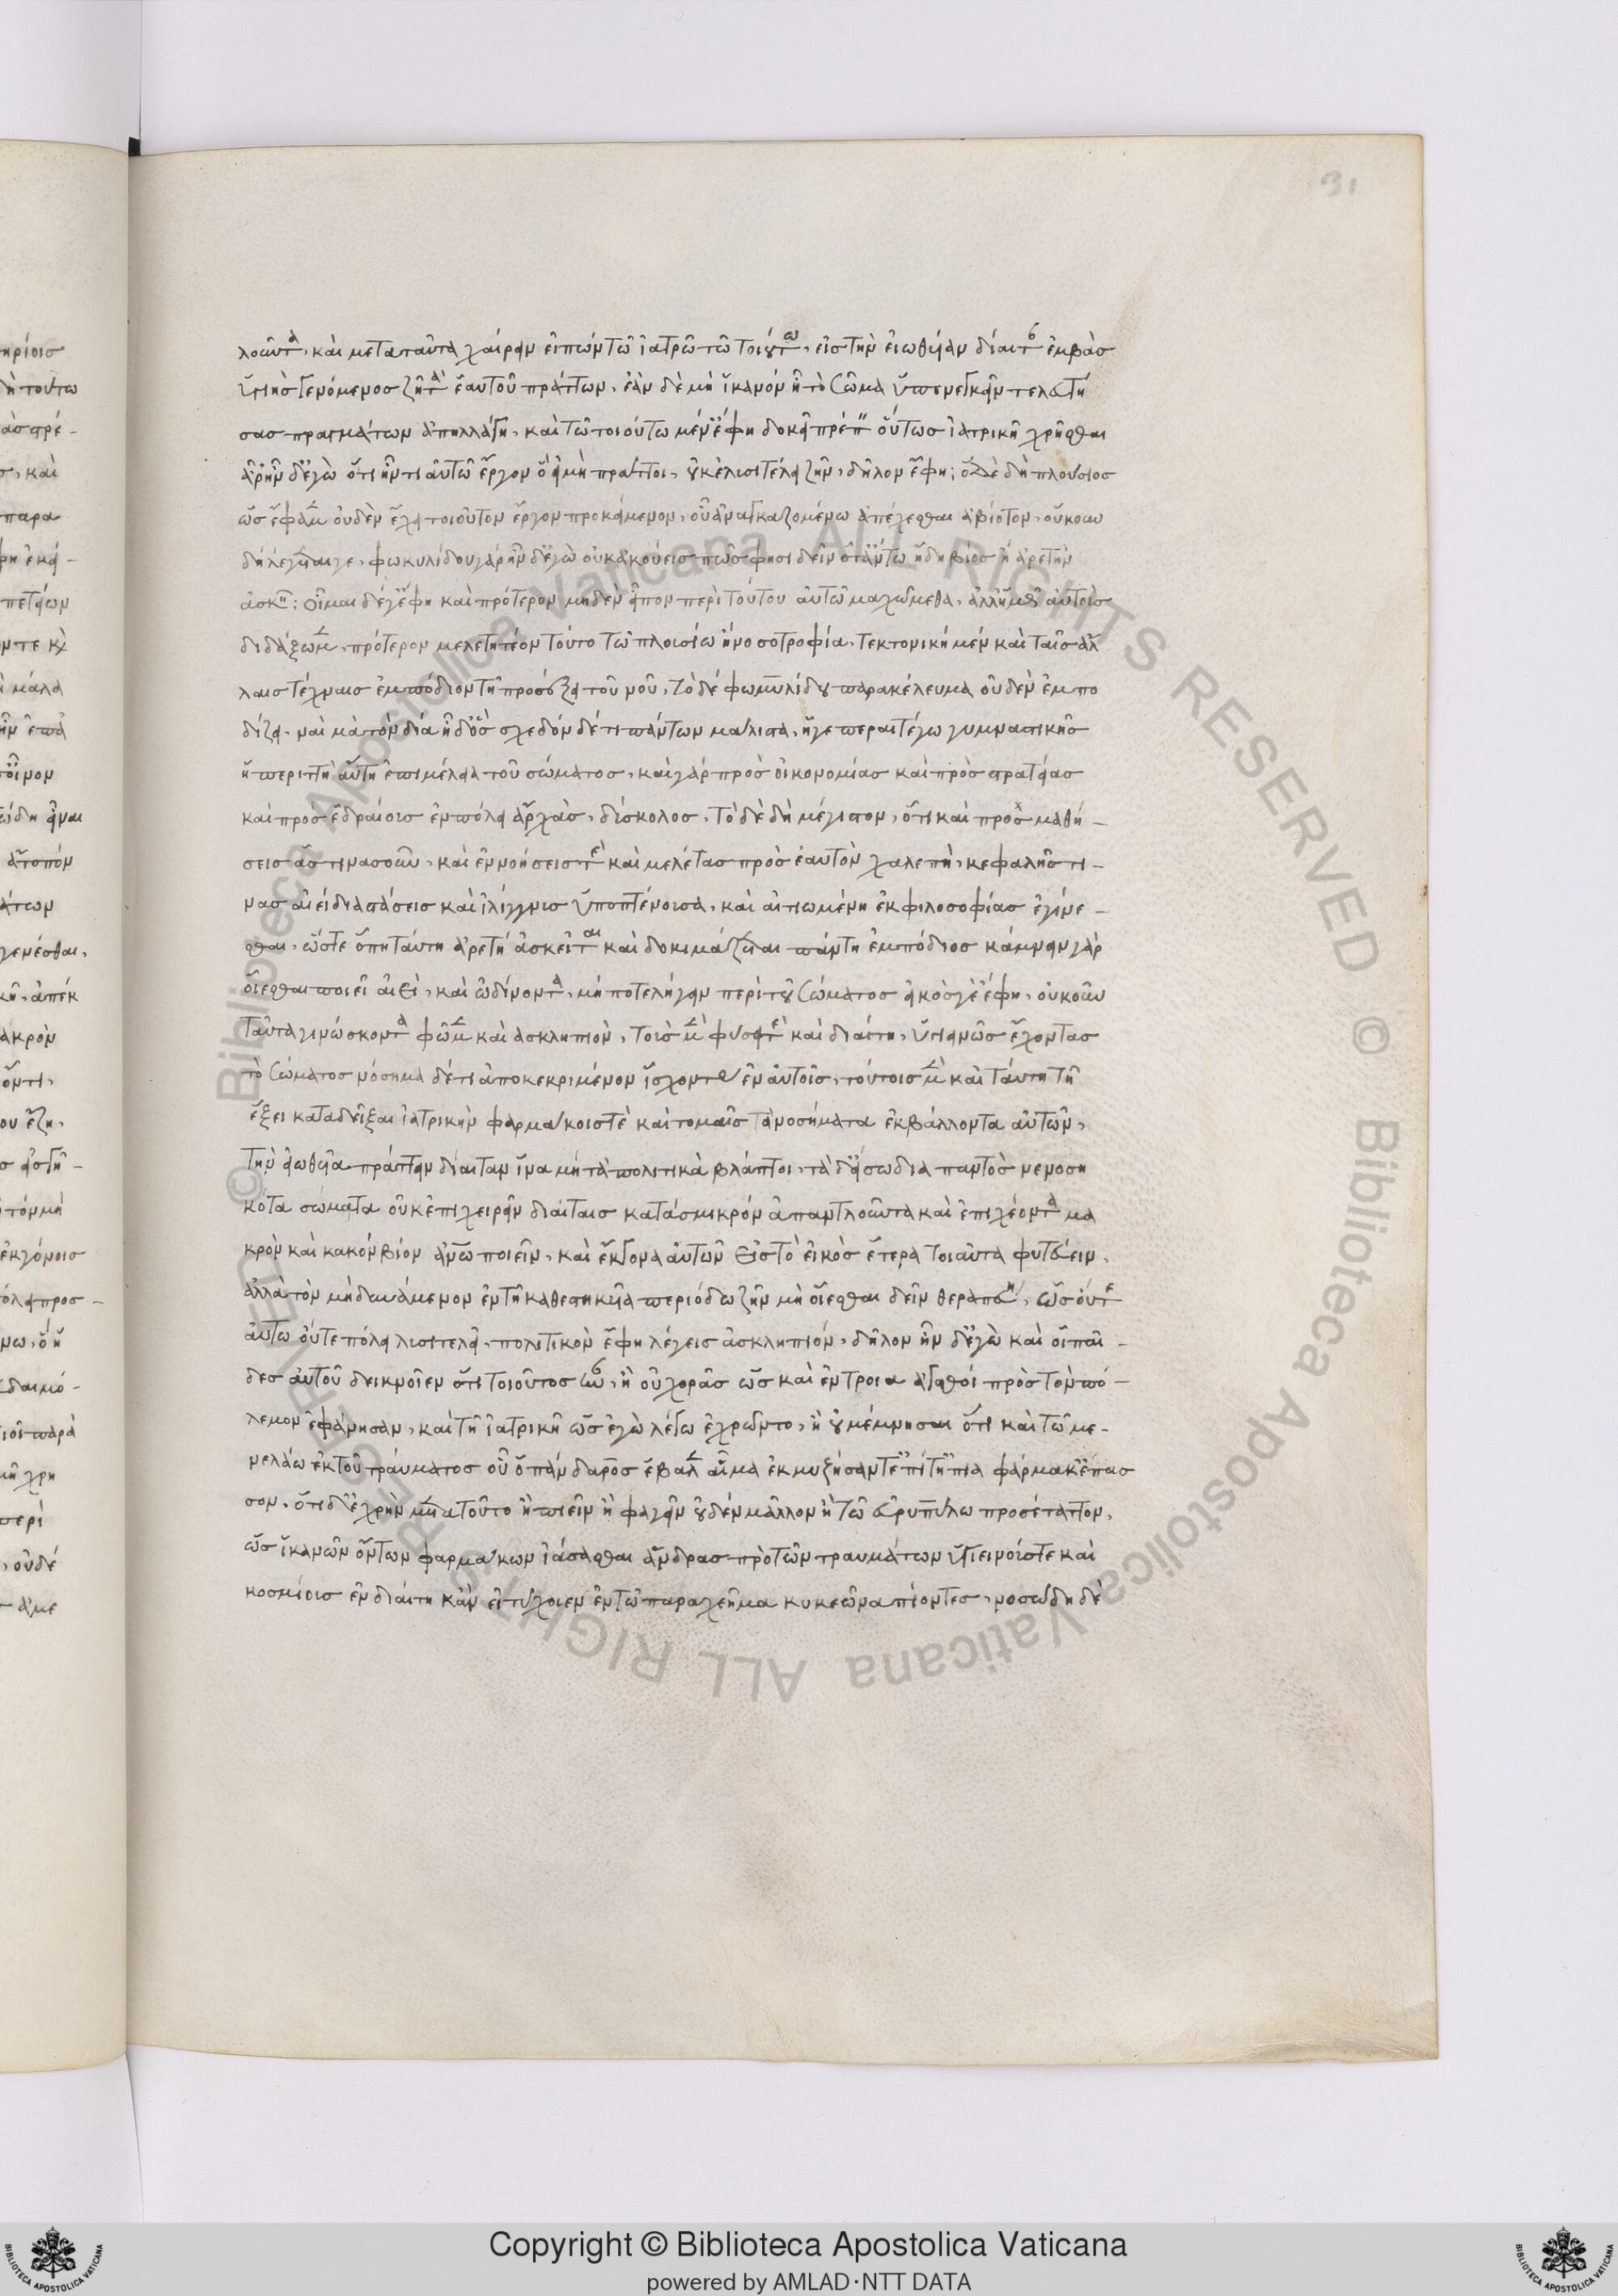 31
λοῦντα, καὶ μετα ταῦτα χαίρειν εἰπὼν τῶ ἰατρῶ τῶ τοιούτω, εἰς τὴν εἰωθυῖαν δίαιταν ἐμβὰς
ὑγιὴς γενόμενος ζῆ τὰ ἑαυτοῦ πράττων, ἐὰν δὲ μὴ ἱκανὸν ἦ τὸ σῶμα ὑπενεγκεῖν τελευτή
σας πραγμάτων ἀπηλλάγη, καὶ τῶ τοιούτω μέν γ' ἔφη δοκεῖ πρέπειν οὕτως ἰατρικῆ χρῆσθαι
ἆρ' ἦν δ' ἐγὼ ὅτι ἦν τι αὐτῶ ἔργον ὃ εἰ μὴ πράττοι, οὐκ ἐλυσιτέλει ζῆν, δῆλον ἔφη; ὁ δὲ δὴ πλούσιος
ὥς ἔφαμεν οὐδὲν ἔχει τοιοῦτον ἔργον προκείμενον, οὗ ἀναγκαζομένω ἀπέχεσθαι ἀβίοτον, οὔκουν
δὴ λέγεταί γε, φωκυλίδου γάρ ἦν δ' ἐγὼ οὐκ ἀκούεις πῶς φησι δεῖν ὅταν τω ἤδη βίος ἦ ἀρετὴν
ἀσκεῖν: οἶμαι δέ γ' ἔφη καὶ πρότερον μηδὲν εἶπον περὶ τούτου αὐτῶ μαχώμεθα, ἀλλ' ἡμᾶς αὐτοὺς
διδάξωμεν, πότερον μελετητέον τοῦτο τῶ πλουσίω ἢ νοσοτροφία, τεκτονικῆ μέν καὶ ταῖς ἄλ
λαις τέχναις ἐμπόδιον τῆ προσέξει τοῦ νοῦ, τὸ δέ φωκυλίδου παρακέλευμα οὐδὲν ἐμπο
δίζει, ναὶ μὰ τὸν δία ἦ δ' ὅς σχεδόν δέ τι πάντων μάλιστα, ἥγε περαιτέρω γυμναστικῆς
ἡ περιττὴ αὕτη ἐπιμέλεια τοῦ σώματος, καὶ γάρ πρὸς οἰκονομίας καὶ πρὸς στρατείας
καὶ προς ἑδραίους ἐν πόλει ἀρχὰς, δύσκολος, τὸ δὲ δὴ μέγιστον, ὅτι καὶ προς μαθή-
σεις ἅς τινασοῦν, καὶ ἐννοήσεις τὲ καὶ μελέτας πρὸς ἑαυτὸν χαλεπὴ, κεφαλῆς τι-
νας αἰεὶ διαστάσεις καὶ ἰλίγγους ὑποπτεύουσα, καὶ αἰτιωμένη ἐκ φιλοσοφίας ἐγγίνε-
σθαι, ὥστε ὅπη ταύτη ἀρετὴ ἀσκεῖται καὶ δοκιμάζεται πάντη ἐμπόδιος κάμνειν γάρ
οἴεσθαι ποιεῖ αἰεὶ, καὶ ὠδίνοντα, μή ποτε λήγειν περὶ τοῦ σώματος εἰκός γ' ἔφη, οὐκοῦν
ταῦτα γινώσκοντα φῶμεν καὶ ἀσκληπιὸν, τοὺς μὲν φύσει τὲ καὶ διαίτη, ὑγιεινῶς ἔχοντας
τὸ σώματος νόσημα δέ τι ἀποκεκριμένον ἴσχοντας ἐν αὑτοῖς, τούτοις μὲν καὶ ταύτη τῆ
ἕξει καταδεῖξαι ἰατρικὴν φαρμάκοις τὲ καὶ τομαῖς τὰ νοσήματα ἐκβάλλοντα αὐτῶν,
τὴν εἰωθυῖα προστάττειν δίαιταν ἵνα μὴ τὰ πολιτικὰ βλάπτοι, τὰ δ' εἴσω δια παντὸς νενοση
κότα σώματα οὐκ ἐπιχειρεῖν διαίταις κατάσμικρὸν ἀπαντλοῦντα καὶ ἐπιχέοντα μα
κρὸν καὶ κακὸν βίον ἀνθρώπω ποιεῖν, καὶ ἔκγονα αὐτῶν ὡς τὸ εἰκὸς ἕτερα τοιαῦτα φυτεύειν,
ἀλλὰ τὸν μὴ δυνάμενον ἐν τῆ καθεστηκυῖα περιόδω ζῆν μὴ οἴεσθαι δεῖν θεραπεύειν, ὡς οὔτε
αὑτῶ οὔτε πόλει λυσιτελῆ, πολιτικὸν ἔφη λέγεις ἀσκληπιόν, δῆλον ἦν δ' ἐγὼ καὶ οἱ παῖ-
δες αὐτοῦ δεικνοῖεν ὅτι τοιοῦτος ἦν, ἢ οὐχ ὁρᾶς ὡς καὶ ἐν τροία ἀγαθοὶ πρὸς τὸν πό-
λεμον ἐφάνησαν, καὶ τῆ ἰατρικῆ ὡς ἐγὼ λέγω ἐχρῶντο, ἢ οὐ μέμνησαι ὅτι καὶ τῶ με-
νελάω ἐκ τοῦ τραύματος οὗ ὁ πάνδαρος ἔβαλεν αἷμα ἐκμυζήσαντ' ἐπί τ' ἤπια φάρμακ' ἔπασ
σον, ὅτι δ' ἐχρὴν μετα τοῦτο ἢ πιεῖν ἢ φαγεῖν οὐδὲν μᾶλλον ἢ τῶ εὐρυπύλω προσέταττον,
ὡς ἱκανῶν ὄντων φαρμάκων ἰάσασθαι ἄνδρας πρὸ τῶν τραυμάτων ὑγιεινούς τε καὶ
κοσμίους ἐν διαίτη κἂν εἰ τύχοιεν ἐν τῶ παραχρῆμα κυκεῶνα πιόντες, νοσώδη δὲ
Copyright © Biblioteca Apostolica Vaticana
powered by AMLAD·NTT DATA